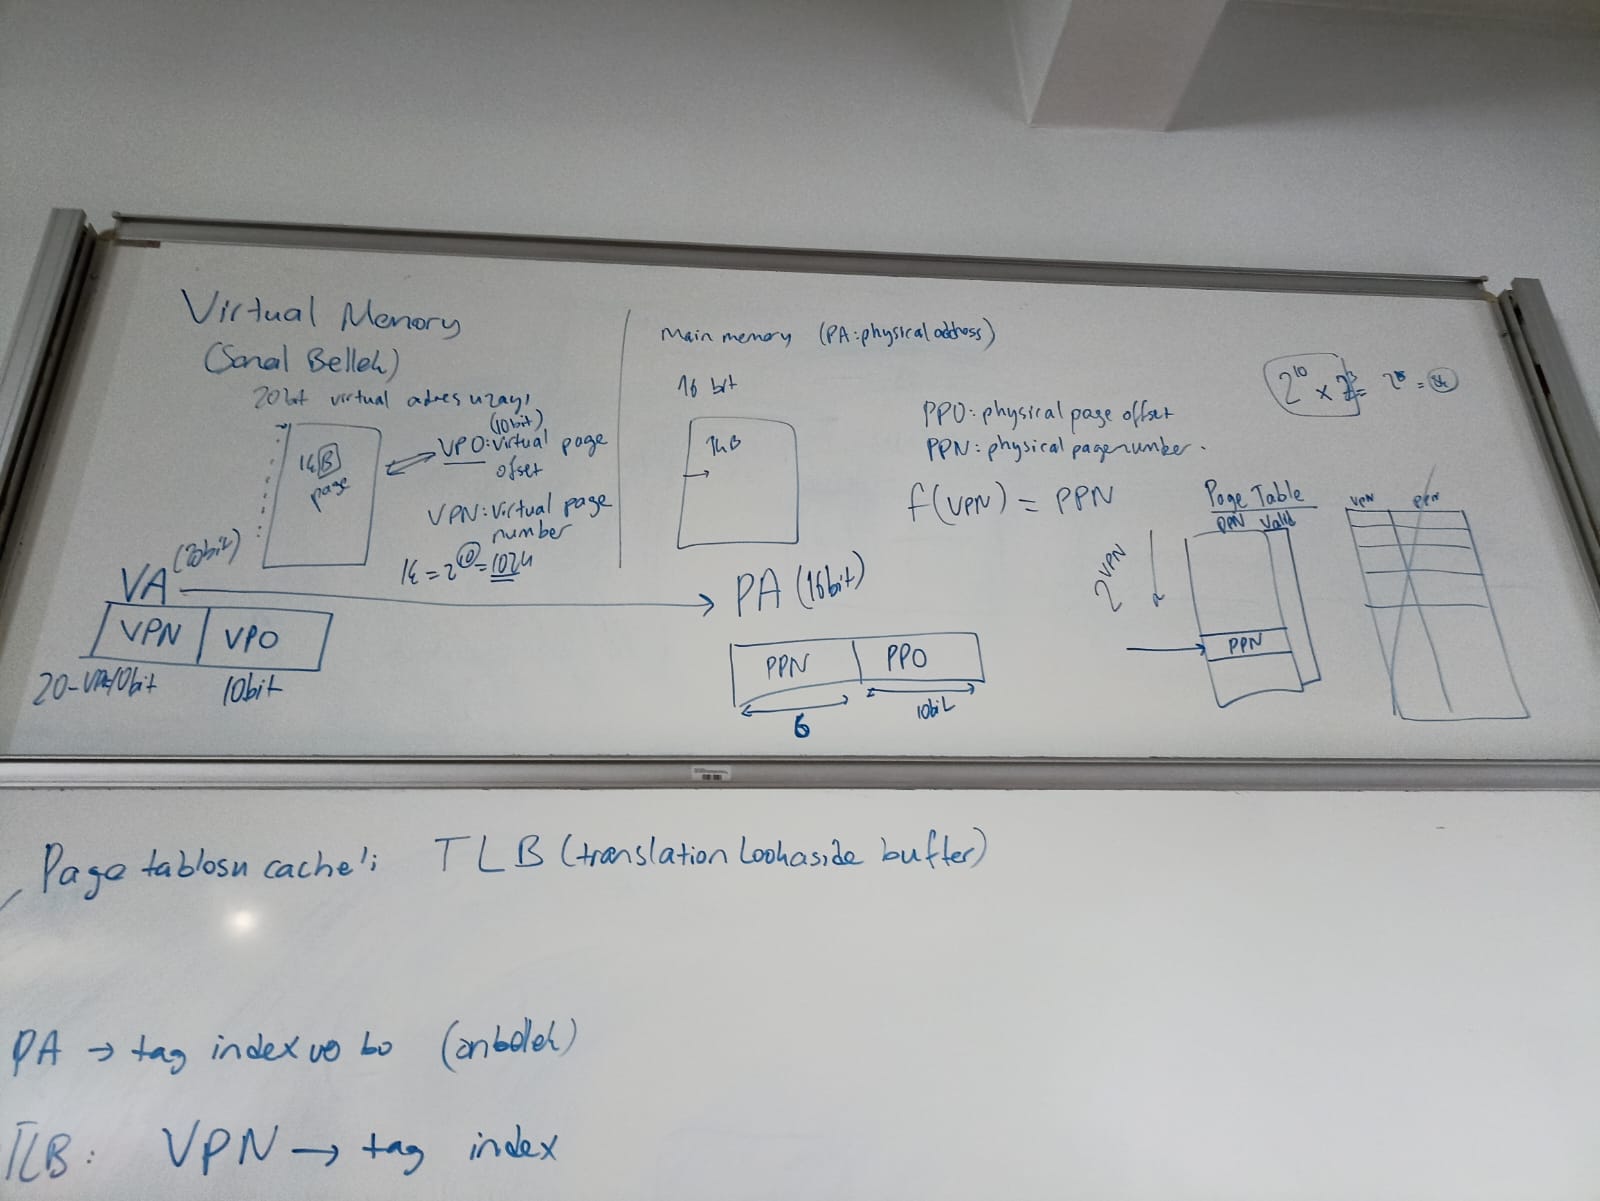 Virtual Memory
(Sanal Bellek)
20bit virtual adres uzayı
1kB
page
(10bit)
VPO: virtual page
ofset
VPN: virtual page
number
1k = 2^10 = 1024
VA (20bit)
VPN VPO
10bit
Main memory (PA: physical address)
16 bit
1kB
PA (16bit)
PPN PPO
6 10bit
PPO: physical page offset
PPN: physical page number.
f(VPN) = PPN
2^10 x
Page Table
PPN Valid
2^VPN
PPN
VPN PPN
Page tablosu cache'i TLB (translation lookaside buffer)
PA → tag index ve bo (önbellek)
TLB: VPN → tag index